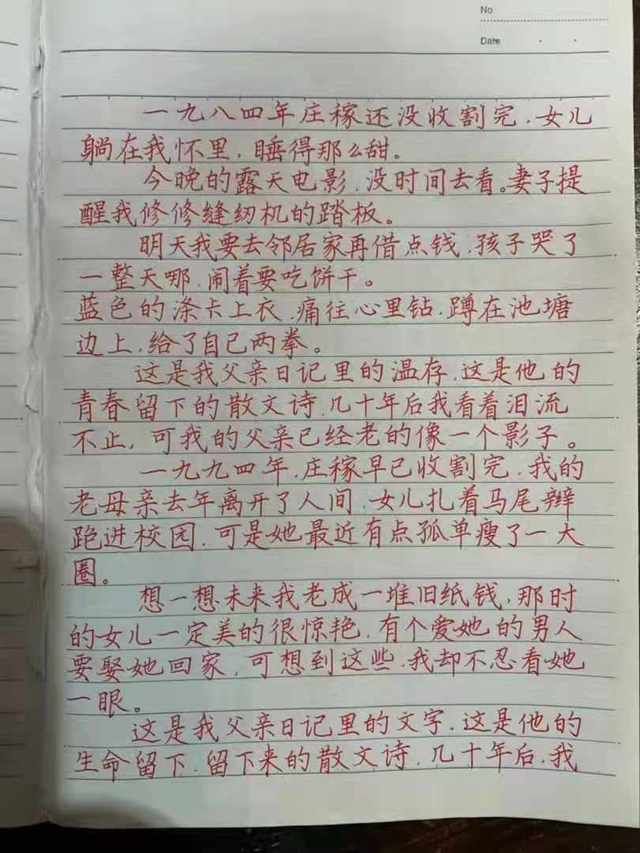 No
Date
一九八四年庄稼还没收割完，女儿
躺在我怀里，睡得那么甜。
今晚的露天电影，没时间去看。妻子提
醒我修修缝纫机的踏板。
明天我要去邻居家再借点钱，孩子哭了
一整天哪，闹着要吃饼干。
蓝色的涤卡上衣，痛往心里钻，蹲在池塘
边上，给了自已两拳。
这是我父亲日记里的温存，这是他的
青春留下的散文诗，几十年后我看着泪流
不止，可我的父亲已经老的像一个影子。
一九九四年，庄稼早已收割完，我的
老母亲去年离开了人间，女儿扎着马尾辫
跑进校园，可是她最近有点孤单瘦了一大
圈。
想一想未来我老成一堆旧纸钱，那时
的女儿一定美的很惊艳，有个爱她的男人
要娶她回家，可想到这些，我却不忍看她
一眼。
这是我父亲日记里的文字，这是他的
生命留下，留下来的散文诗，几十年后，我